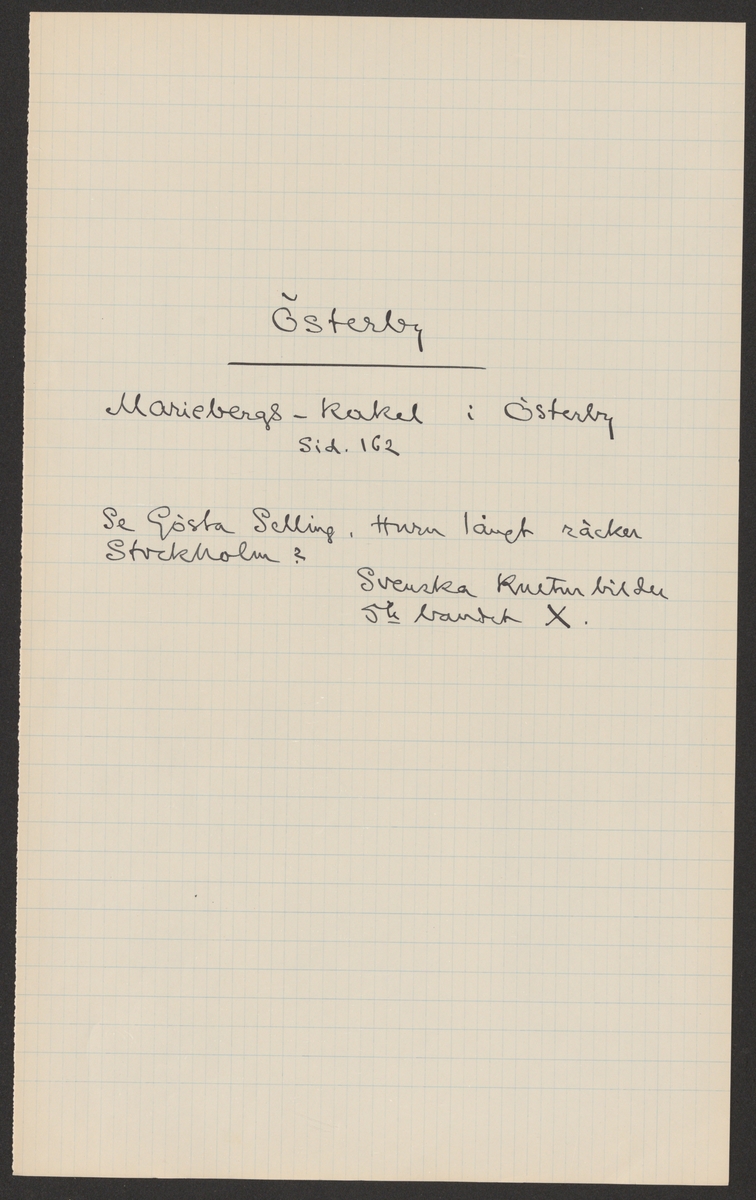 Österby
Mariebergs - kakel i Österby
Sid. 162
Se Gösta Selling, Huru långt räcker
Stockholm?
Svenska Kulturbilder
5te bandet X.